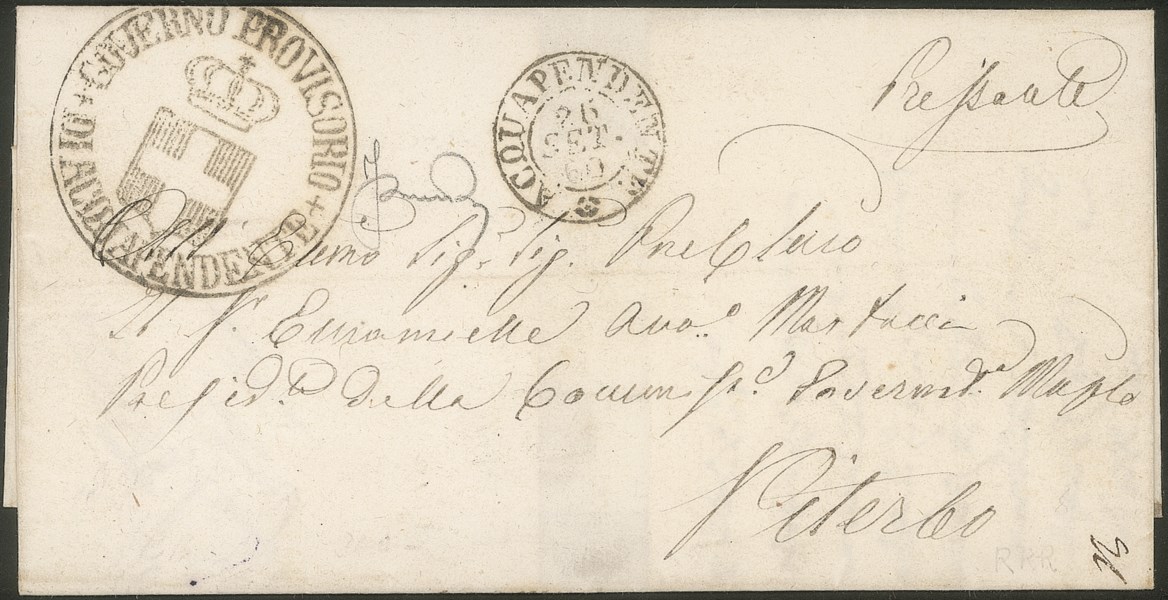 GOVERNO PROVISORIO + DI ACQUAPENDENTE +
ACQUAPENDENTE
26
SET.
60
Pressante
All' Illmo Sig. Sig. Pne Clmo
Il Sr. Emmanuele Avv.o Martucci
Presid.te della Commiss.e Governa.
Viterbo
RRR